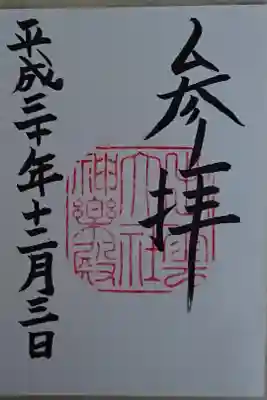 参拝
出雲
大社
神楽殿
平成三十年十二月三日